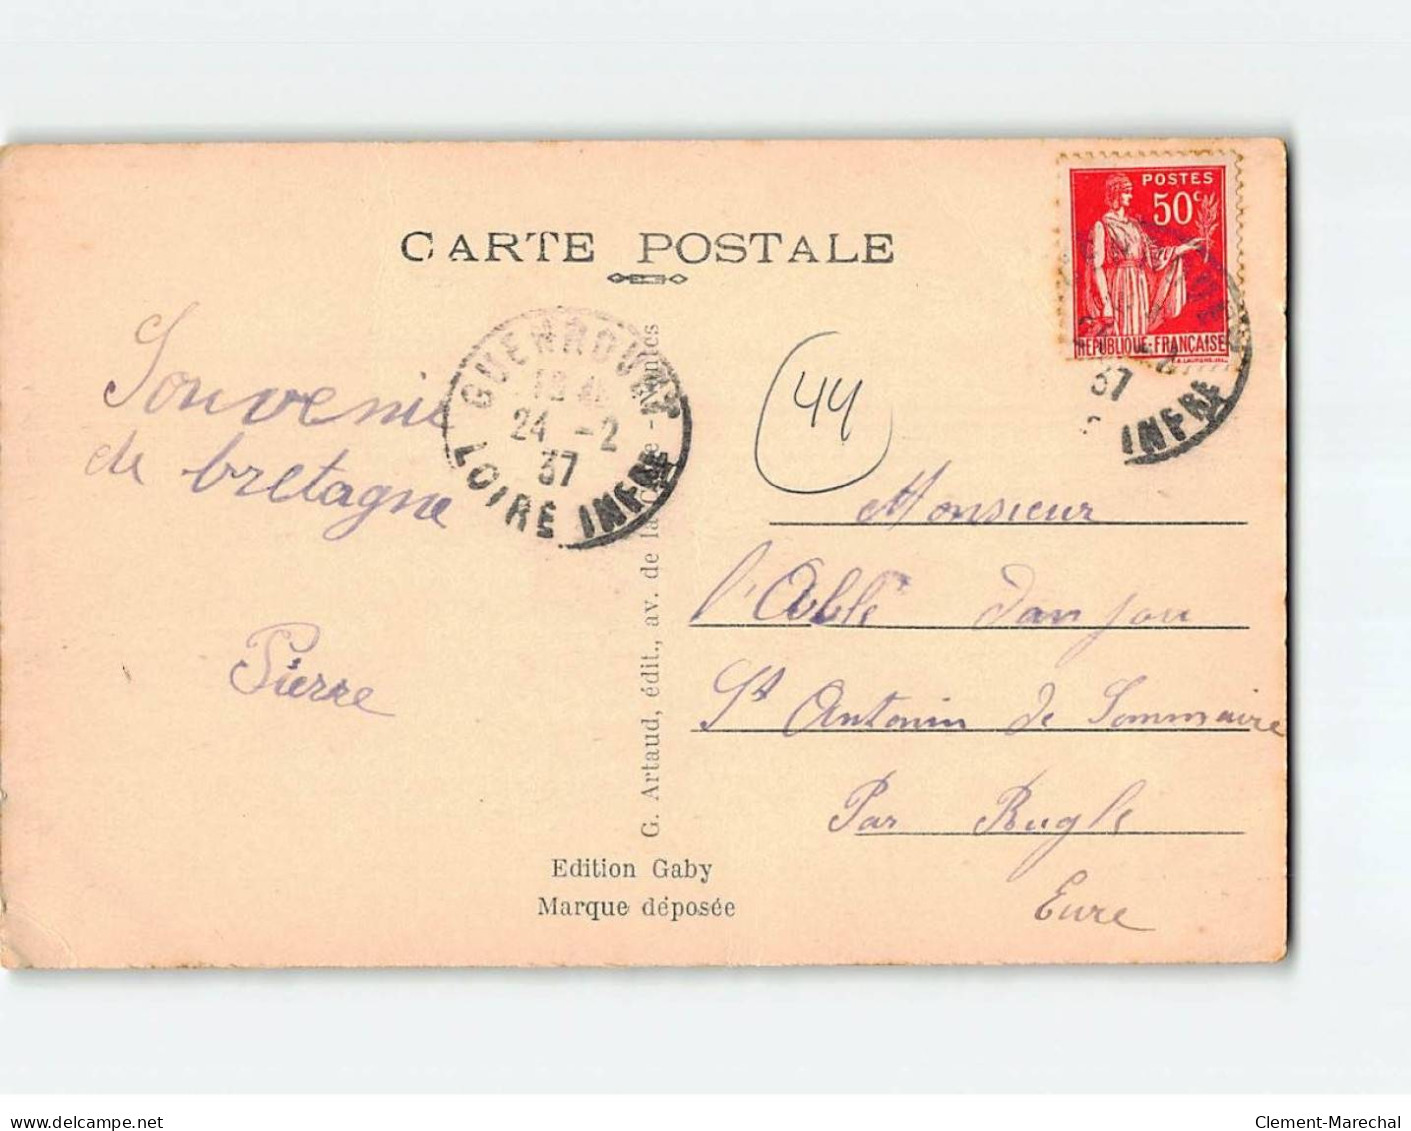 CARTE POSTALE
POSTES
50c
RÉPUBLIQUE-FRANÇAISE
GUENROUET
24 -2
37
LOIRE INFRE
37
INFRE
44
Souvenir
de bretagne
Pierre
Monsieur
l'Abbé Danjou
St Antonin de Sommaire
Par Rugls
Eure
G. Artaud, édit., av. de la Close - Nantes
Edition Gaby
Marque déposée
delcampe.net
Clement-Marechal